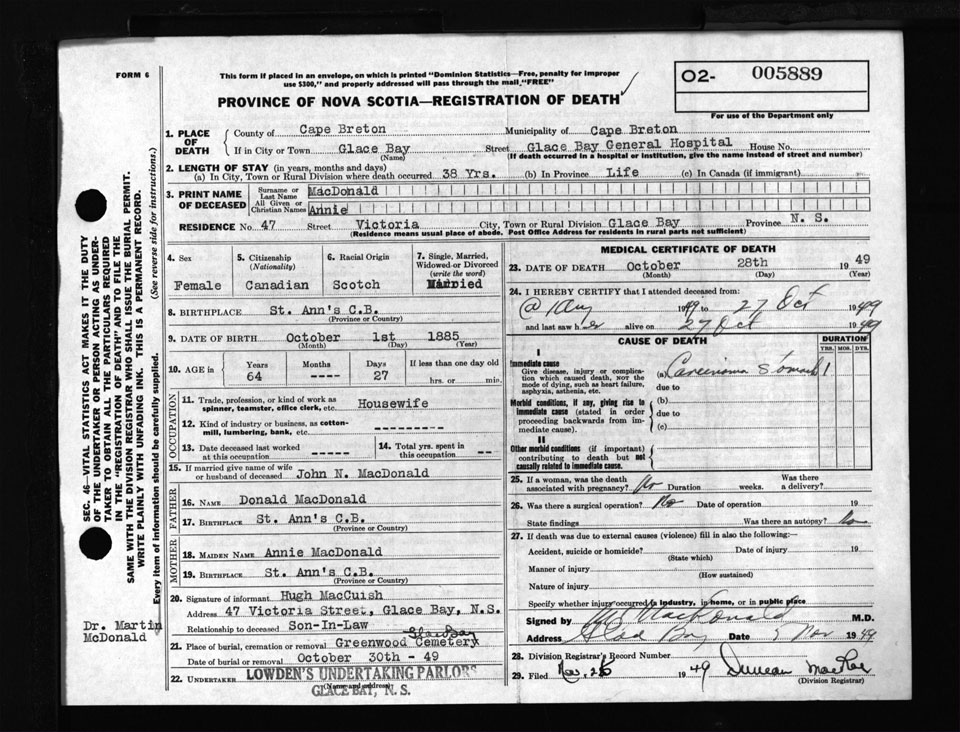 FORM 6
This form if placed in an envelope, on which is printed "Dominion Statistics—Free, penalty for improper
use $300," and properly addressed will pass through the mail "FREE"
PROVINCE OF NOVA SCOTIA—REGISTRATION OF DEATH
O2- 005889
For use of the Department only
1. PLACE OF DEATH
County of Cape Breton Municipality of Cape Breton
If in City or Town Glace Bay Street Glace Bay General Hospital House No.
(Name) (If death occurred in a hospital or institution, give the name instead of street and number)
2. LENGTH OF STAY (in years, months and days)
(a) In City, Town or Rural Division where death occurred 38 Yrs. (b) In Province Life (c) In Canada (if immigrant)
3. PRINT NAME OF DECEASED
Surname or Last Name MacDonald
All Given or Christian Names Annie
RESIDENCE No 47 Street Victoria City, Town or Rural Division Glace Bay Province N. S.
(Residence means usual place of abode. Post Office Address for residents in rural parts not sufficient)
4. Sex
Female
5. Citizenship (Nationality)
Canadian
6. Racial Origin
Scotch
7. Single, Married, Widowed or Divorced
(write the word)
Married
8. BIRTHPLACE St. Ann's C.B.
(Province or Country)
9. DATE OF BIRTH October 1st 1885
(Month) (Day) (Year)
10. AGE in
Years Months Days If less than one day old
64 ---- 27 hrs. or min.
OCCUPATION
11. Trade, profession, or kind of work as
spinner, teamster, office clerk, etc. Housewife
12. Kind of industry or business, as cotton-
mill, lumbering, bank, etc. ---------
13. Date deceased last worked
at this occupation -----
14. Total yrs. spent
in this occupation --
15. If married give name of wife
or husband of deceased John N. MacDonald
FATHER
16. Name Donald MacDonald
17. Birthplace St. Ann's C.B.
(Province or Country)
MOTHER
18. Maiden Name Annie MacDonald
19. Birthplace St. Ann's C.B.
(Province or Country)
20. Signature of informant Hugh MacCuish
Address 47 Victoria Street, Glace Bay, N.S.
Relationship to deceased Son-In-Law
Glace Bay
21. Place of burial, cremation or removal Greenwood Cemetery
Date of burial or removal October 30th - 49
22. Undertaker LOWDEN'S UNDERTAKING PARLORS
(Name and address)
GLACE BAY, N. S.
MEDICAL CERTIFICATE OF DEATH
23. DATE OF DEATH October 28th 1949
(Month) (Day) (Year)
24. I HEREBY CERTIFY that I attended deceased from:
1949 to 27 Oct 1949
and last saw her alive on 27 Oct 1949
CAUSE OF DEATH
DURATION
YRS. MOS. DYS.
I
Immediate cause
Give disease, injury or complica-
tion which caused death, not the
mode of dying, such as heart failure,
asphyxia, asthenia, etc.
(a) Carcinoma Stomach 1
due to
Morbid conditions, if any, giving rise to
immediate cause (stated in order
proceeding backwards from im-
mediate cause).
(b)
due to
(c)
II
Other morbid conditions (if important)
contributing to death but not
causally related to immediate cause.
25. If a woman, was the death
associated with pregnancy? No Duration weeks. Was there a delivery?
26. Was there a surgical operation? No Date of operation 19
State findings Was there an autopsy? No
27. If death was due to external causes (violence) fill in also the following:—
Accident, suicide or homicide? Date of injury 19
(State which)
Manner of injury
(How sustained)
Nature of injury
Specify whether injury occurred in industry, in home, or in public place
Signed by MacDonald M.D.
Address Glace Bay Date 5 Nov 1949
28. Division Registrar's Record Number
29. Filed Nov. 25 1949 Duncan MacRae
(Division Registrar)
SEC. 46—VITAL STATISTICS ACT MAKES IT THE DUTY
OF THE UNDERTAKER OR PERSON ACTING AS UNDER-
TAKER TO OBTAIN ALL THE PARTICULARS REQUIRED
IN THE "REGISTRATION OF DEATH" AND TO FILE THE
SAME WITH THE DIVISION REGISTRAR WHO SHALL ISSUE THE BURIAL PERMIT.
WRITE PLAINLY WITH UNFADING INK. THIS IS A PERMANENT RECORD.
Every item of information should be carefully supplied. (See reverse side for instructions.)
Dr. Martin
McDonald